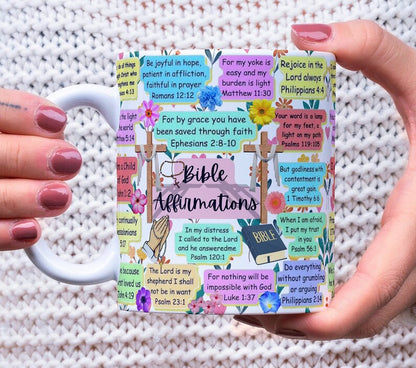 of things
Christ who
thens me
4:13
Be joyful in hope,
patient in affliction,
faithful in prayer
Romans 12:12
For my yoke is
easy and my
burden is light
Matthew 11:30
Rejoice in the
Lord always
Philippians 4:4
the light
the world
For by grace you have
been saved through faith
Ephesians 2:8-10
Your word is a lamp
for my feet, a
light on my path
Psalm 119:105
a Child
of God
Bible
Affirmations
But godliness
with contentment is
great gain.
1 Timothy 6:6
continually
psalms
In my distress
I called to the Lord
and he answeredme
Psalm 120:1
BIBLE
When I am afraid,
I put my trust
in you
Psalm 56:3
because
The Lord is my
shepherd I shall
not be in want
Psalm 23:1
For nothing will be
impossible with God
Luke 1:37
Do everything
without grumbling
or arguing
Philippians 2:14